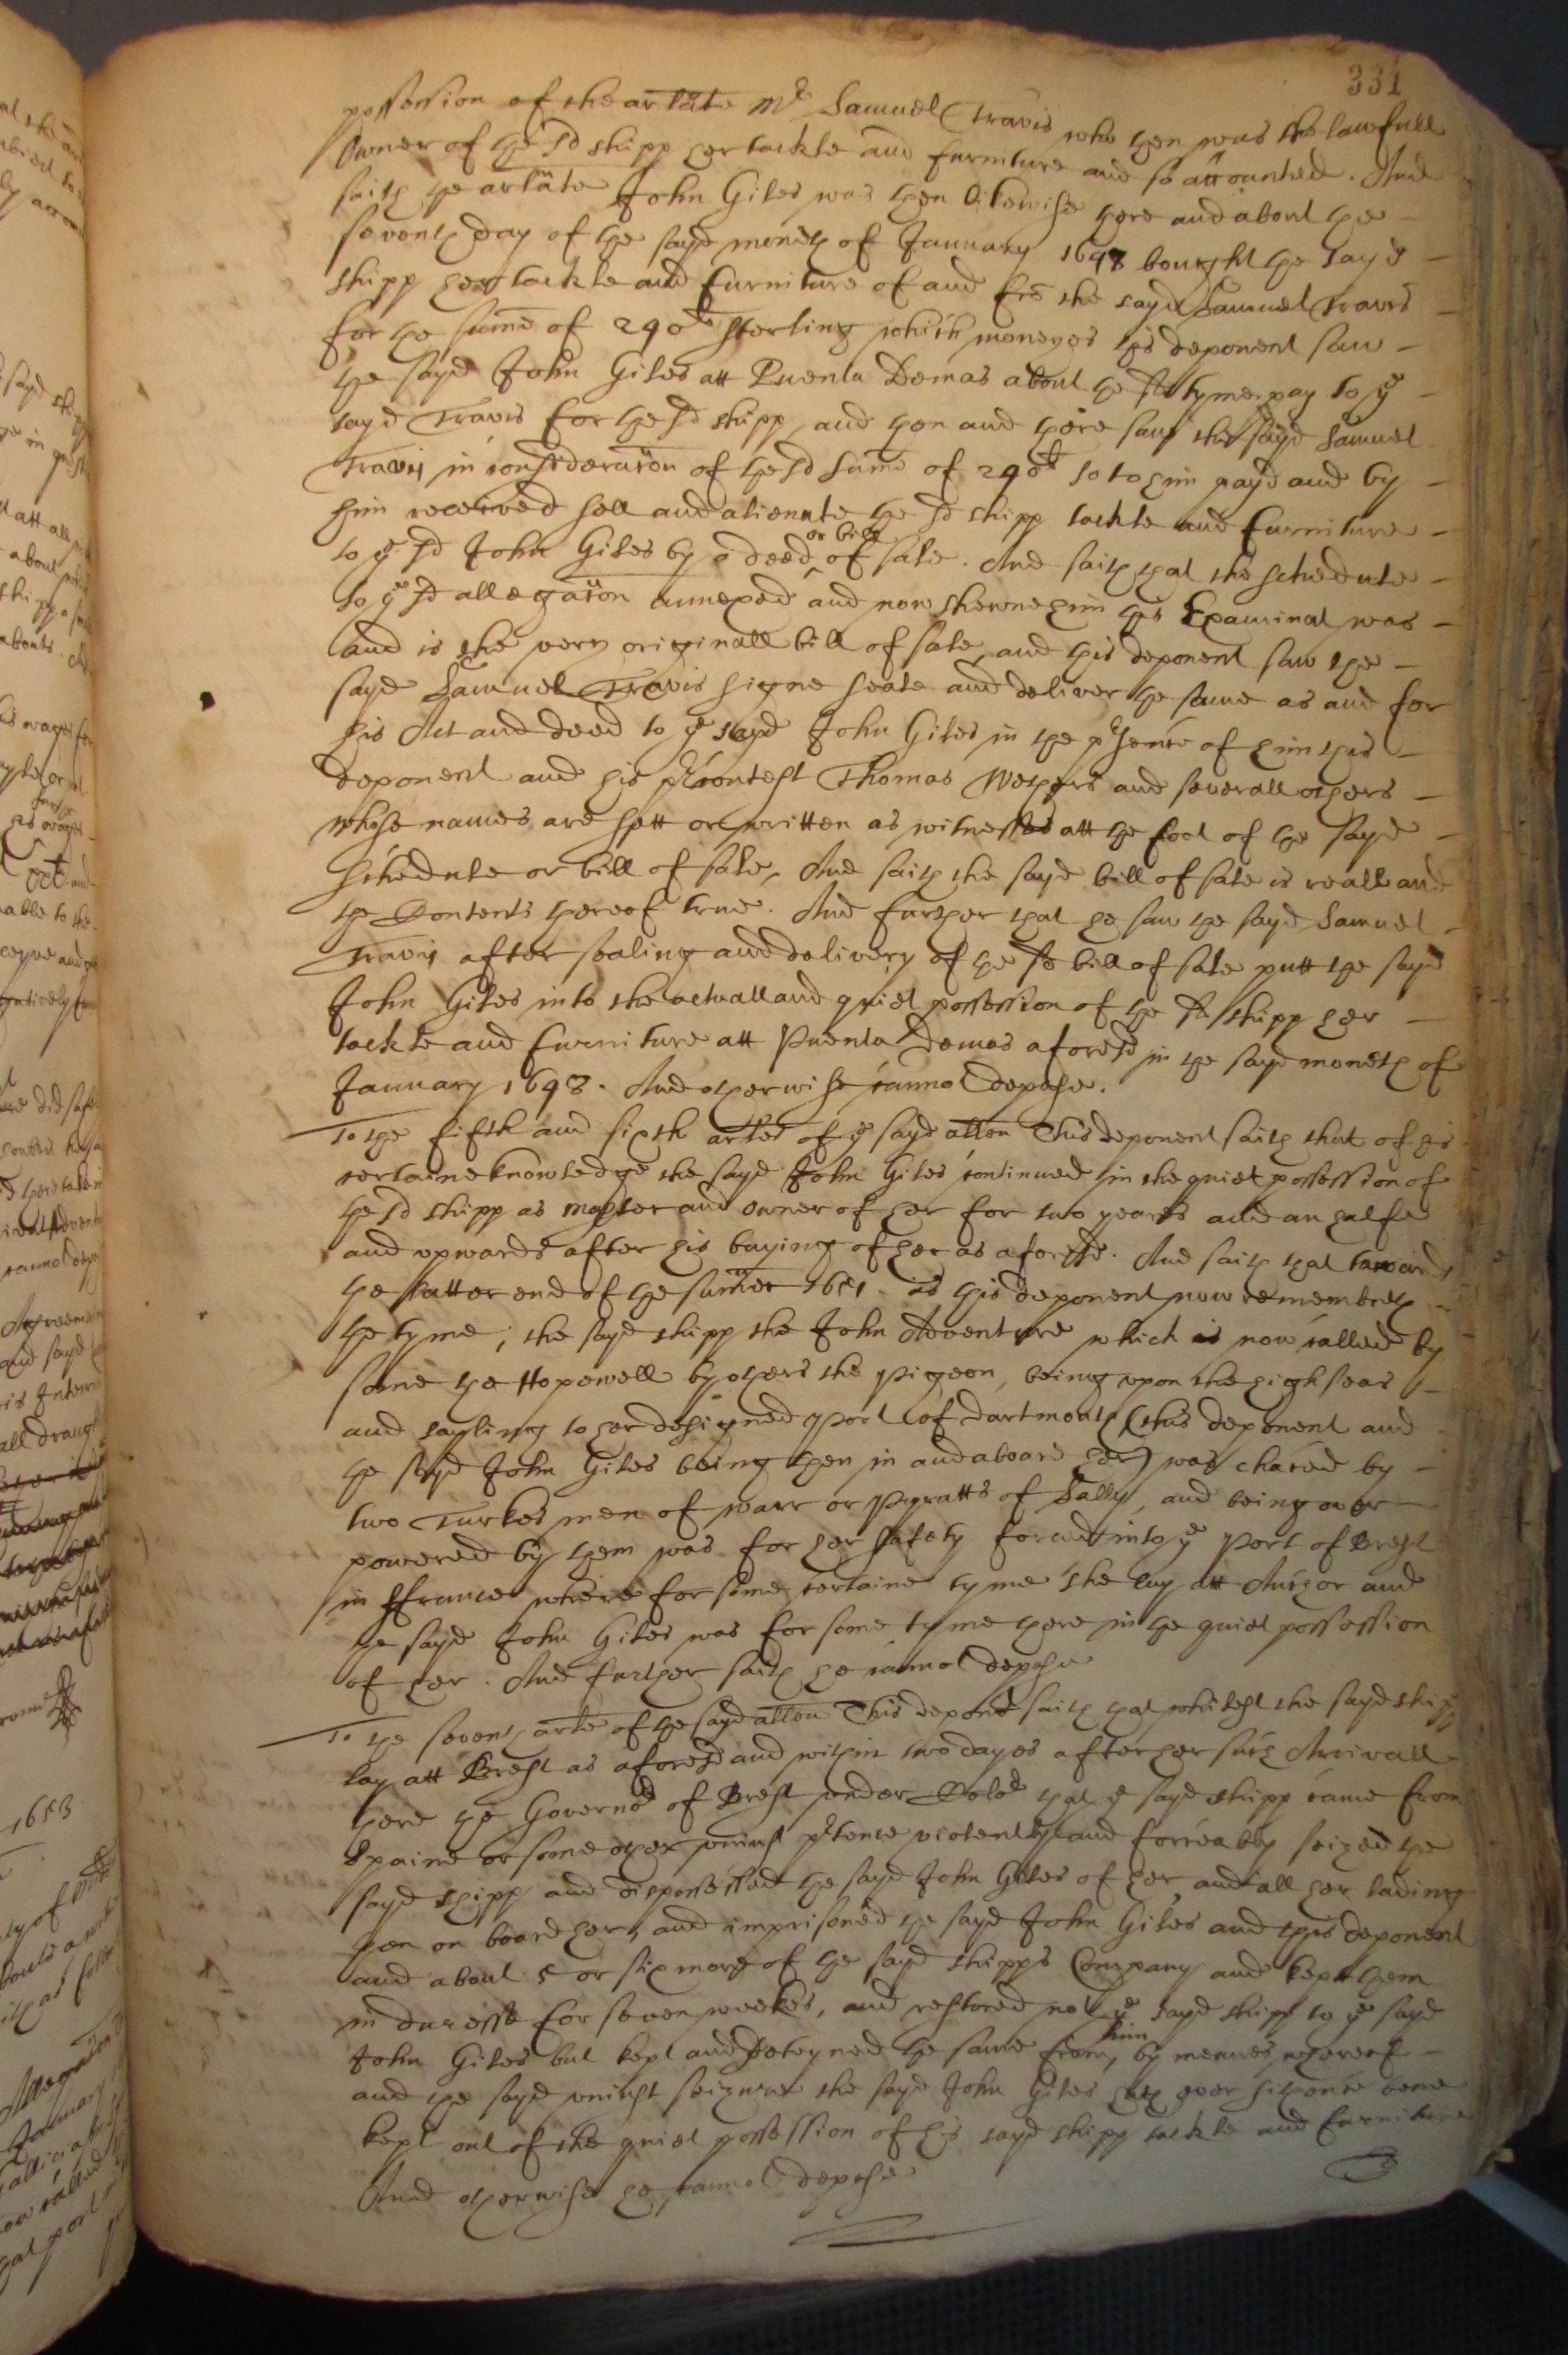 331
possession of the arlate Mr Samuel Travis who then was the lawfull
Owner of the sd shipp her tackle and furniture and so accounted. And
saith the arlate John Giles was then likewise there and about the
seventh day of the sayd moneth of January 1648 bought the sayd
shipp her tackle and furniture of and fro the sayd Samuel Travis
for the sume of 290li sterling which moneyes this deponent saw
the sayd John Giles att Puenta Demas about the sd tyme pay to ye
sayd Travis for the sd shipp, and then and there saw the sayd Samuel
Travis in consideracon of the sd sume of 290li so to him payd and by
him received sell and alienate the sd shipp tackle and furniture
to ye sd John Giles by a deed or bill of sale. And saith that the schedule
to ye sd allegacon annexed and now shewne him this Examinat was
and is the very originall bill of sale, and this deponent saw the
sayd Samuel Travis signe seale and deliver the same as and for
his Act and deed to ye sayd John Giles in the prsence of him this
deponent and his prcontest Thomas Wethers and severall others
whose names are sett or written as witnesses att the foot of the sayd
schedule or bill of sale, And saith the sayd bill of sale is reall and
the Contents thereof true. And further that he saw the sayd Samuel
Travis after sealing and delivery of the sd bill of sale putt the sayd
John Giles into the actuall and quiet possession of the sd shipp her
tackle and furniture att Puenta Demas aforesd in the sayd moneth of
January 1648. And otherwise cannot depose.
To the fifth and sixth arles of ye sayd allon This deponent saith that of his
certaine knowledge the sayd John Giles continued in the quiet possession of
the sd shipp as master and owner of her for two yeares and an halfe
and upwards after his buying of her as aforesd. And saith that towards
the latter end of the summer 1651 as this deponent now remembreth
the tyme, the sayd shipp the John Adventure which is now called by
some the Hopewell by others the Pigeon, being upon the high seas
and sayling to her designed Port of Dartmouth (this deponent and
the sayd John Giles being then in and aboard her) was chaced by
two Turkes men of warr or Pyratts of Sally, and being over
powered by them was for her safety forced into ye Port of Brest
in ffrance where for some certaine tyme she lay att Anchor and
the sayd John Giles was for some tyme there in the quiet possession
of her. And further saith he cannot depose
To the seventh arle of the sayd allon This deponent saith that whilest the sayd shipp
lay att Brest as aforesd and within two dayes after her such Arrivall
there the Governor of Brest under Color that ye sayd shipp came from
Spaine or some other uniust prtence violently and forceably seized the
sayd shipp and dispossessed the sayd John Giles of her and all her lading
then on board her, and imprisoned the sayd John Giles and this deponent
and about 5 or six more of the sayd shipps Company and kept them
in duresse for seven weekes, and restored not ye sayd shipp to ye sayd
John Giles but kept and deteyned the same from him, by meanes whereof
and the sayd uniust seizure the sayd John Giles hath ever sithence bene
kept out of the quiet possession of his sayd shipp tackle and furniture
And otherwise he cannot depose